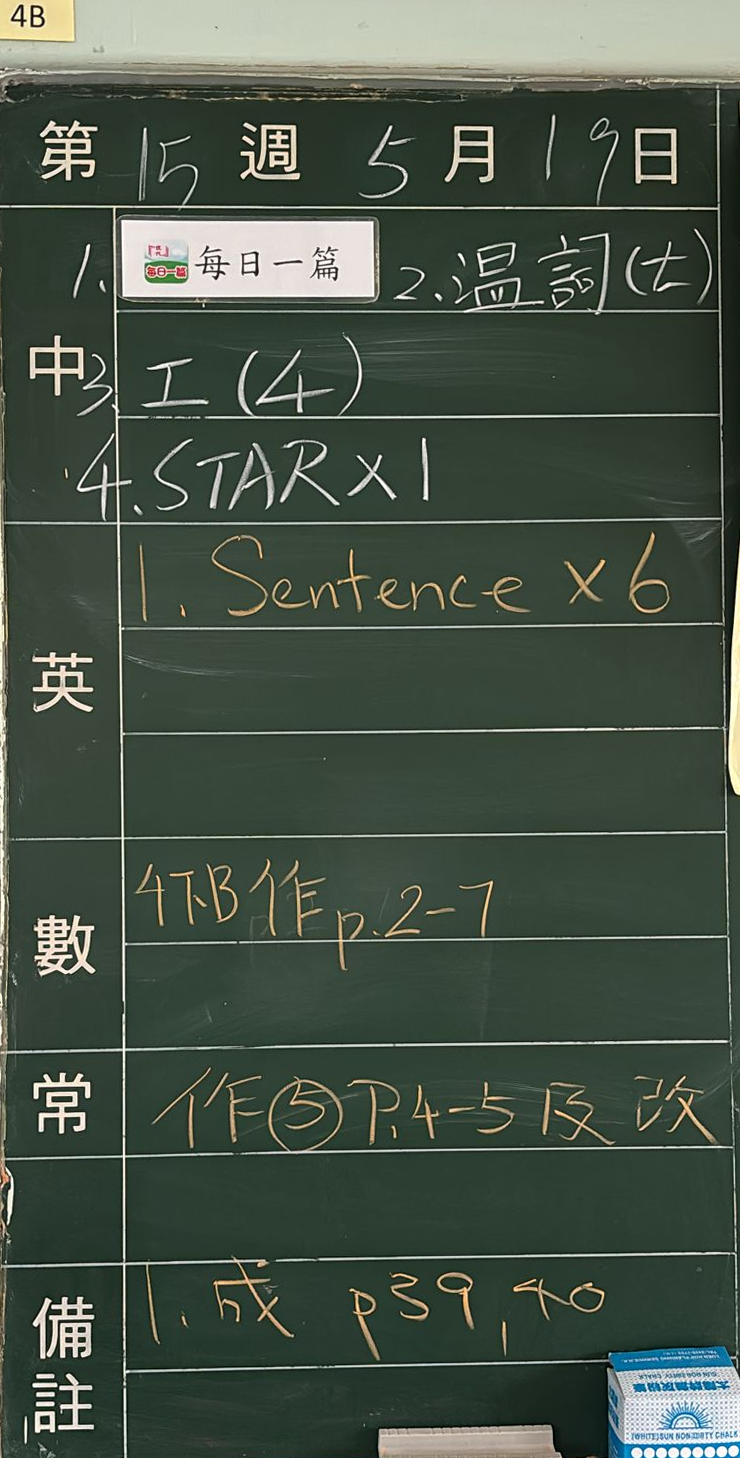 4B
第 15 週 5 月 19 日
中
1. 每日一篇 2. 温詞(七)
3. 工(4)
4. STAR x 1
英
1. Sentence x 6
數
4下B作 p.2-7
常
作⑤ P.4-5 及 改
備註
1. 成 p39, 40